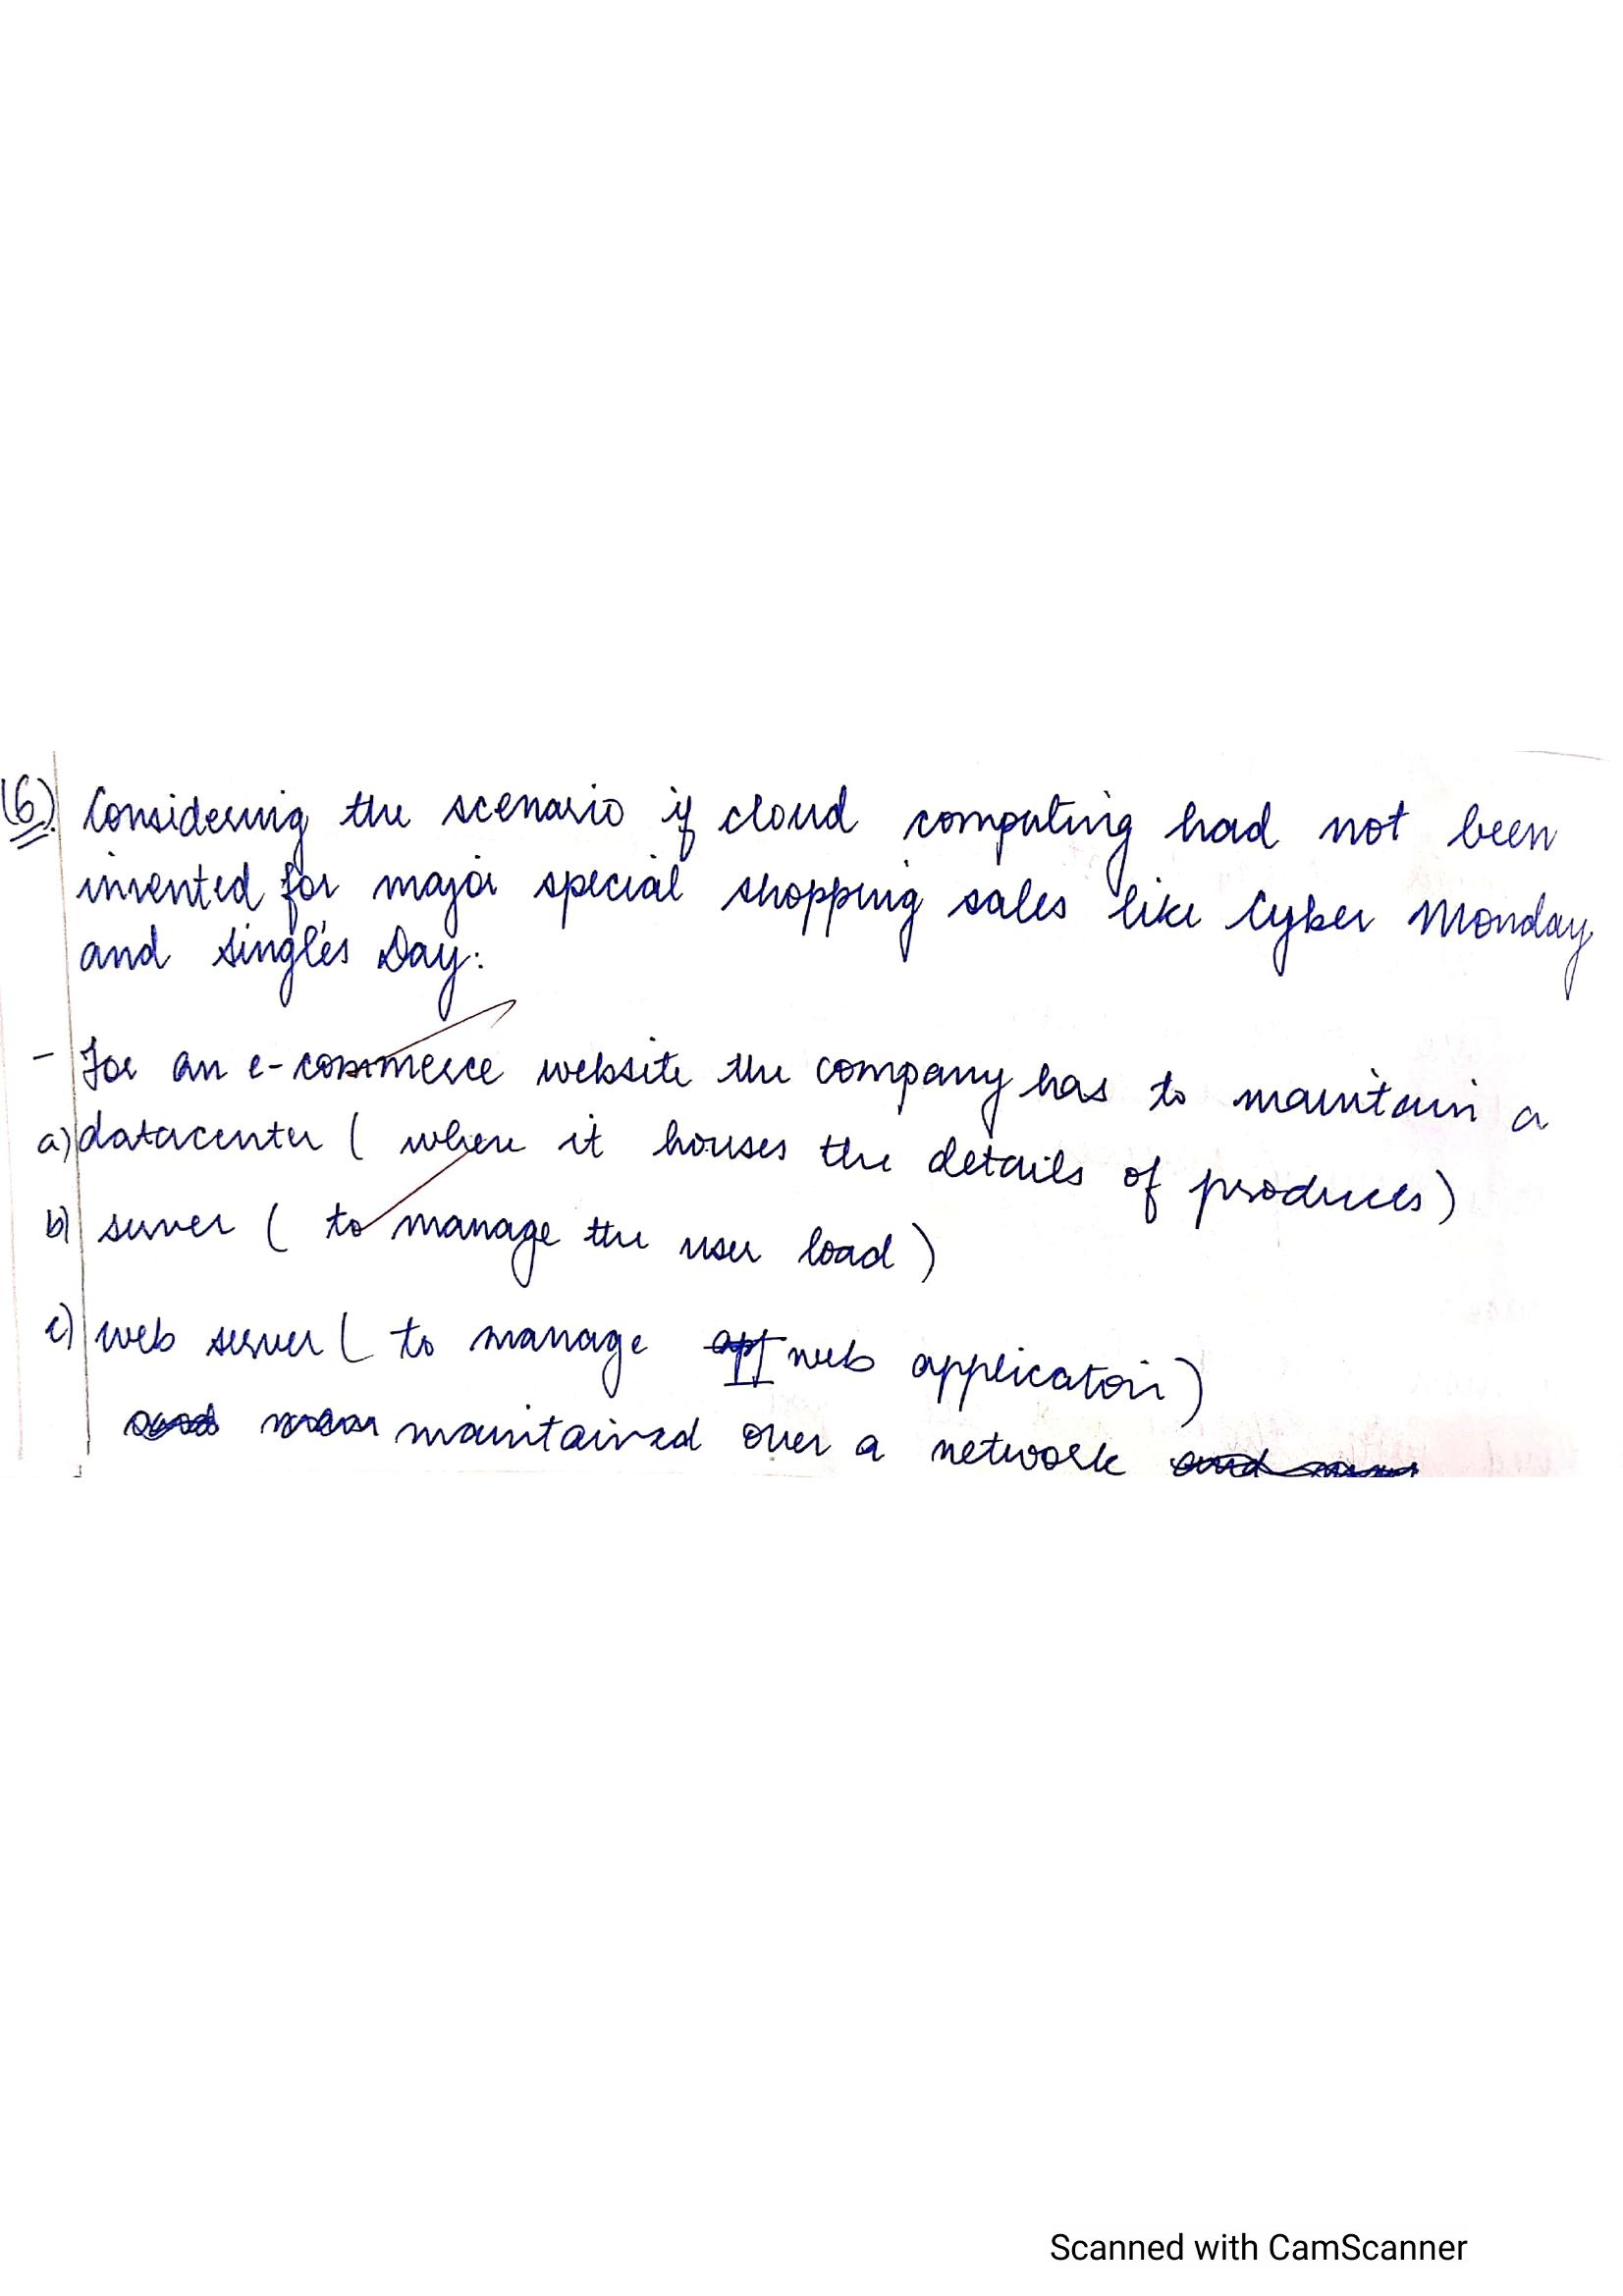 (6) Considering the scenario if cloud computing had not been
invented for major special shopping sales like Cyber Monday
and Single's Day:
- For an e-commerce website the company has to maintain a
a) datacenter ( where it houses the details of produces)
b) server ( to manage the user load)
c) web server ( to manage web application)
maintained over a network
Scanned with CamScanner